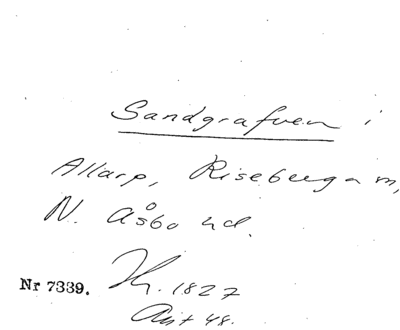 Sandgrafven i
Allarp, Riseberga sn,
N. Åsbo hd.
Nr 7339. Kr. 1827
Avt 48.